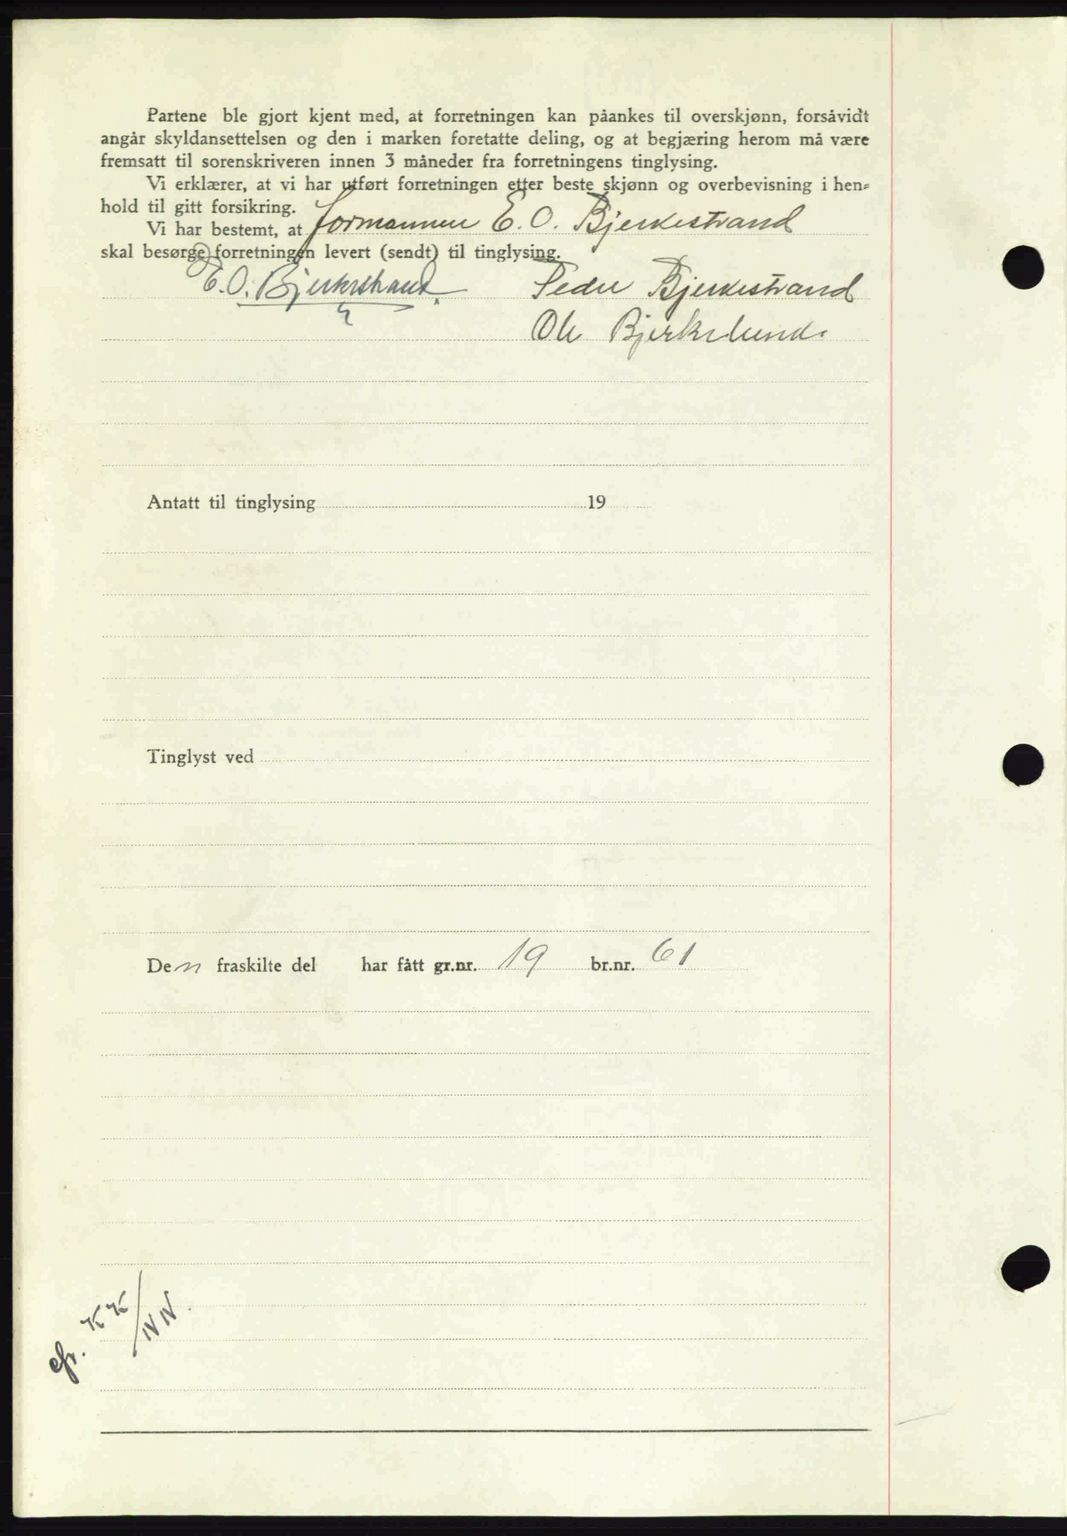 Partene ble gjort kjent med, at forretningen kan påankes til overskjønn, forsåvidt
angår skyldansettelsen og den i marken foretatte deling, og at begjæring herom må være
fremsatt til sorenskriveren innen 3 måneder fra forretningens tinglysing.
Vi erklærer, at vi har utført forretningen etter beste skjønn og overbevisning i hen=
hold til gitt forsikring.
Vi har bestemt, at formannen E. O. Bjerkestrand
skal besørge forretningen levert (sendt) til tinglysing.
E. O. Bjerkestrand Peder Bjerkestrand
Ole Bjerkelund.
Antatt til tinglysing 19
Tinglyst ved
Den fraskilte del har fått gr.nr. 19 br.nr. 61
cfr.